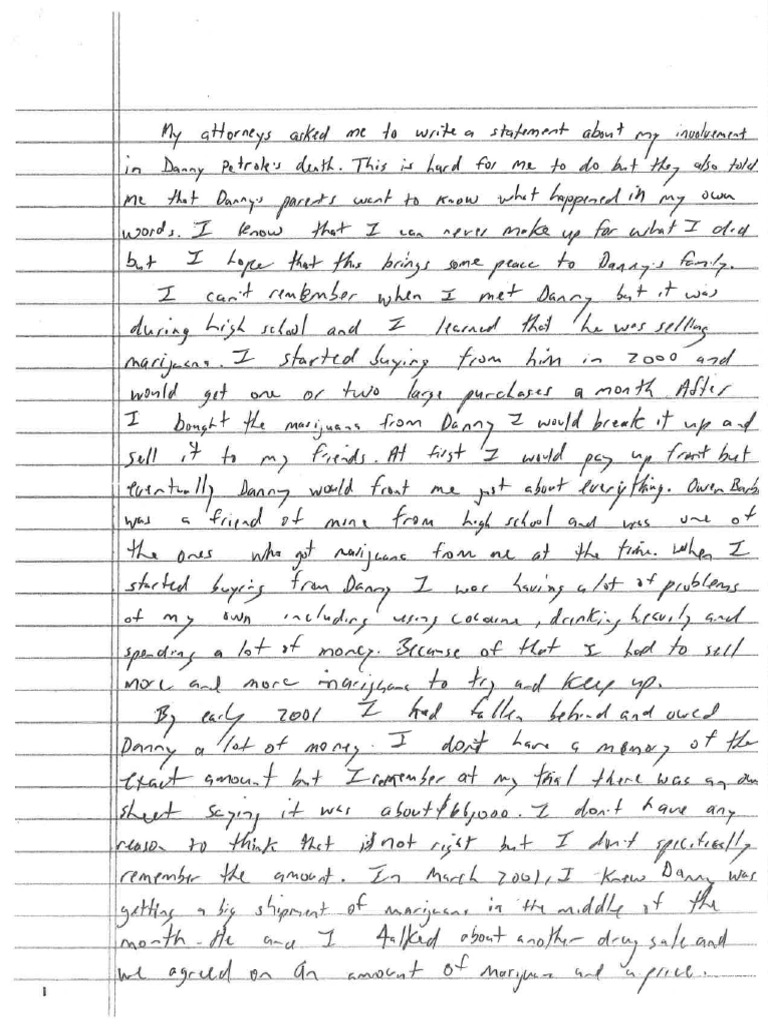 My attorneys asked me to write a statement about my involvement
in Danny Petrole's death. This is hard for me to do but they also told
me that Danny's parents want to know what happened in my own
words. I know that I can never make up for what I did
but I hope that this brings some peace to Danny's family.
I can't remember when I met Danny but it was
during high school and I learned that he was selling
marijuana. I started buying from him in 2000 and
would get one or two large purchases a month. After
I bought the marijuana from Danny I would break it up and
sell it to my friends. At first I would pay up front but
eventually Danny would front me just about everything. Owen Barb
was a friend of mine from high school and was one of
the ones who got marijuana from me at the time. When I
started buying from Danny I was having a lot of problems
of my own including using cocaine, drinking heavily and
spending a lot of money. Because of that I had to sell
more and more marijuana to try and keep up.
By early 2001 I had fallen behind and owed
Danny a lot of money. I don't have a memory of the
exact amount but I remember at my trial there was an owe
sheet saying it was about $66,000. I don't have any
reason to think that is not right but I don't specifically
remember the amount. In March 2001, I knew Danny was
getting a big shipment of marijuana in the middle of the
month. He and I talked about another drug sale and
we agreed on an amount of marijuana and a price.
1